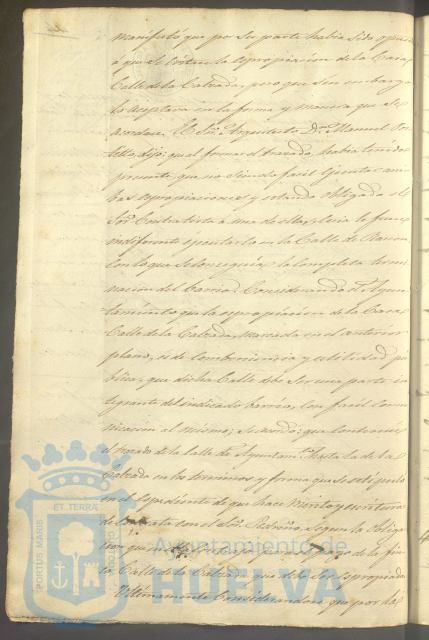 manifestó que por su parte habia sido opuesto
á que se hiciera la espropiacion de la Casa
Calle de la Calzada, pero que sin embargo
lo aceptava en la forma y manera que se
acordara. El Sor. Arquitecto Dn. Manuel
dijo: que al formar el trazado, habia tenido
presente que no siendo facil ejecutar am-
bas espropiaciones y estando obligado el
Sor. Contratista á una de ellas, le
indiferente ejecutarla en la Calle de
con lo que se conseguia la completa termi-
nacion del barrio. Considerando el Ayun-
tamiento que la espropiacion de la Casa
Calle de la Calzada, marcada en el anterior
plano, es de conveniencia y utilidad pú-
blica, que dicha Calle debe ser una parte in-
tegrante del indicado barrio, con facil comu-
nicacion al mismo; se acordó: que continúe
el trazado de la Calle de Ayuntamto. hasta la de la
Calzada en los terminos y forma que se estipuló
en el espediente de que hace mérito y escritura
de Contrata con el Sor. segun la obliga-
cion que
la Calle de la Calzada que debe ser espropiada
Ultimamente considerandose que por la
PORTUS MARIS
ET TERRÆ
CUSTODIA
Ayuntamiento de
HUELVA